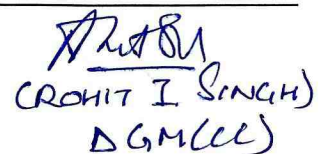 (ROHIT I SINGH)
DGM(CC)